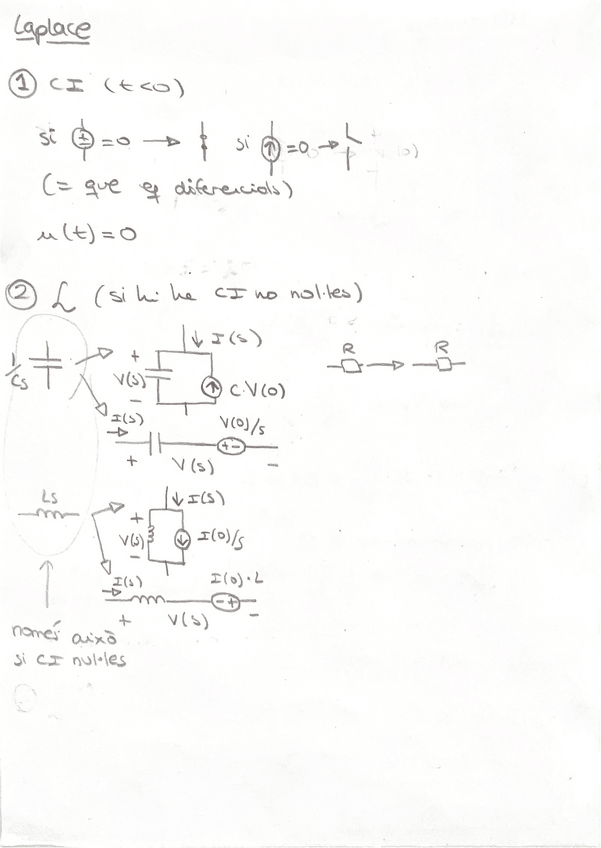 Laplace
① CI (t<0)
si =0 → si =0 →
(= que eq diferencials)
u(t)=0
② L (si hi ha CI no nul·les)
1/Cs
+ V(s) - I(s) C·V(0)
R → R
I(s) V(0)/s
+ V(s) -
Ls
+ V(s) - I(s) I(0)/s
I(s) I(0)·L
+ V(s) -
només això
si CI nul·les